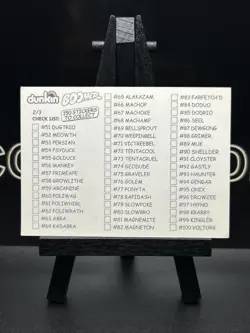 dunkin
BOOMER
150 STICKERS
TO COLLECT
2/3
CHECK LIST:
#51 DUGTRIO
#52 MEOWTH
#53 PERSIAN
#54 PSYDUCK
#55 GOLDUCK
#56 MANKEY
#57 PRIMEAPE
#58 GROWLITHE
#59 ARCANINE
#60 POLIWAG
#61 POLIWHIRL
#62 POLIWRATH
#63 ABRA
#64 KADABRA
#65 ALAKAZAM
#66 MACHOP
#67 MACHOKE
#68 MACHAMP
#69 BELLSPROUT
#70 WEEPINBELL
#71 VICTREEBEL
#72 TENTACOOL
#73 TENTACRUEL
#74 GEODUDE
#75 GRAVELER
#76 GOLEM
#77 PONYTA
#78 RAPIDASH
#79 SLOWPOKE
#80 SLOWBRO
#81 MAGNEMITE
#82 MAGNETON
#83 FARFETCH'D
#84 DODUO
#85 DODRIO
#86 SEEL
#87 DEWGONG
#88 GRIMER
#89 MUK
#90 SHELLDER
#91 CLOYSTER
#92 GASTLY
#93 HAUNTER
#94 GENGAR
#95 ONIX
#96 DROWZEE
#97 HYPNO
#98 KRABBY
#99 KINGLER
#100 VOLTORB